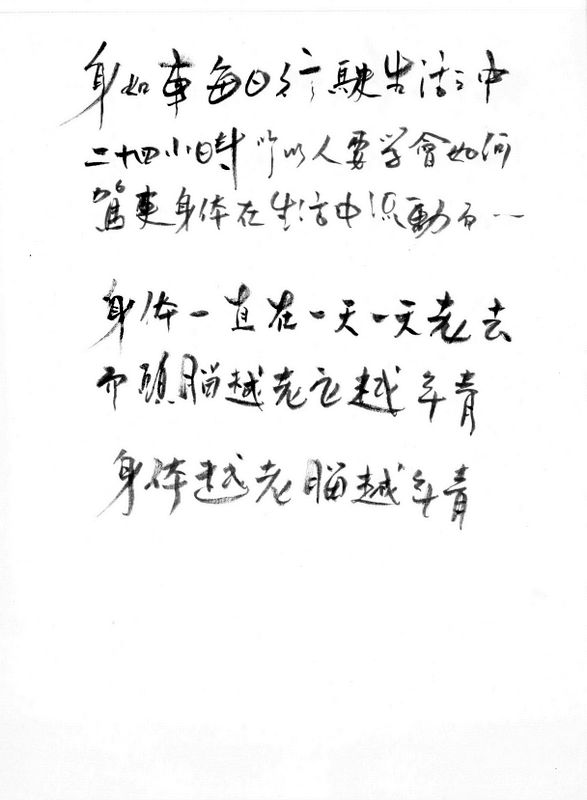 身如車每日行駛生活之中
二十四小時所以人要学會如何
駕駛身体在生活中流動而一一
身体一直在一天一天老去
而頭腦越老它越年青
身体越老腦越年青